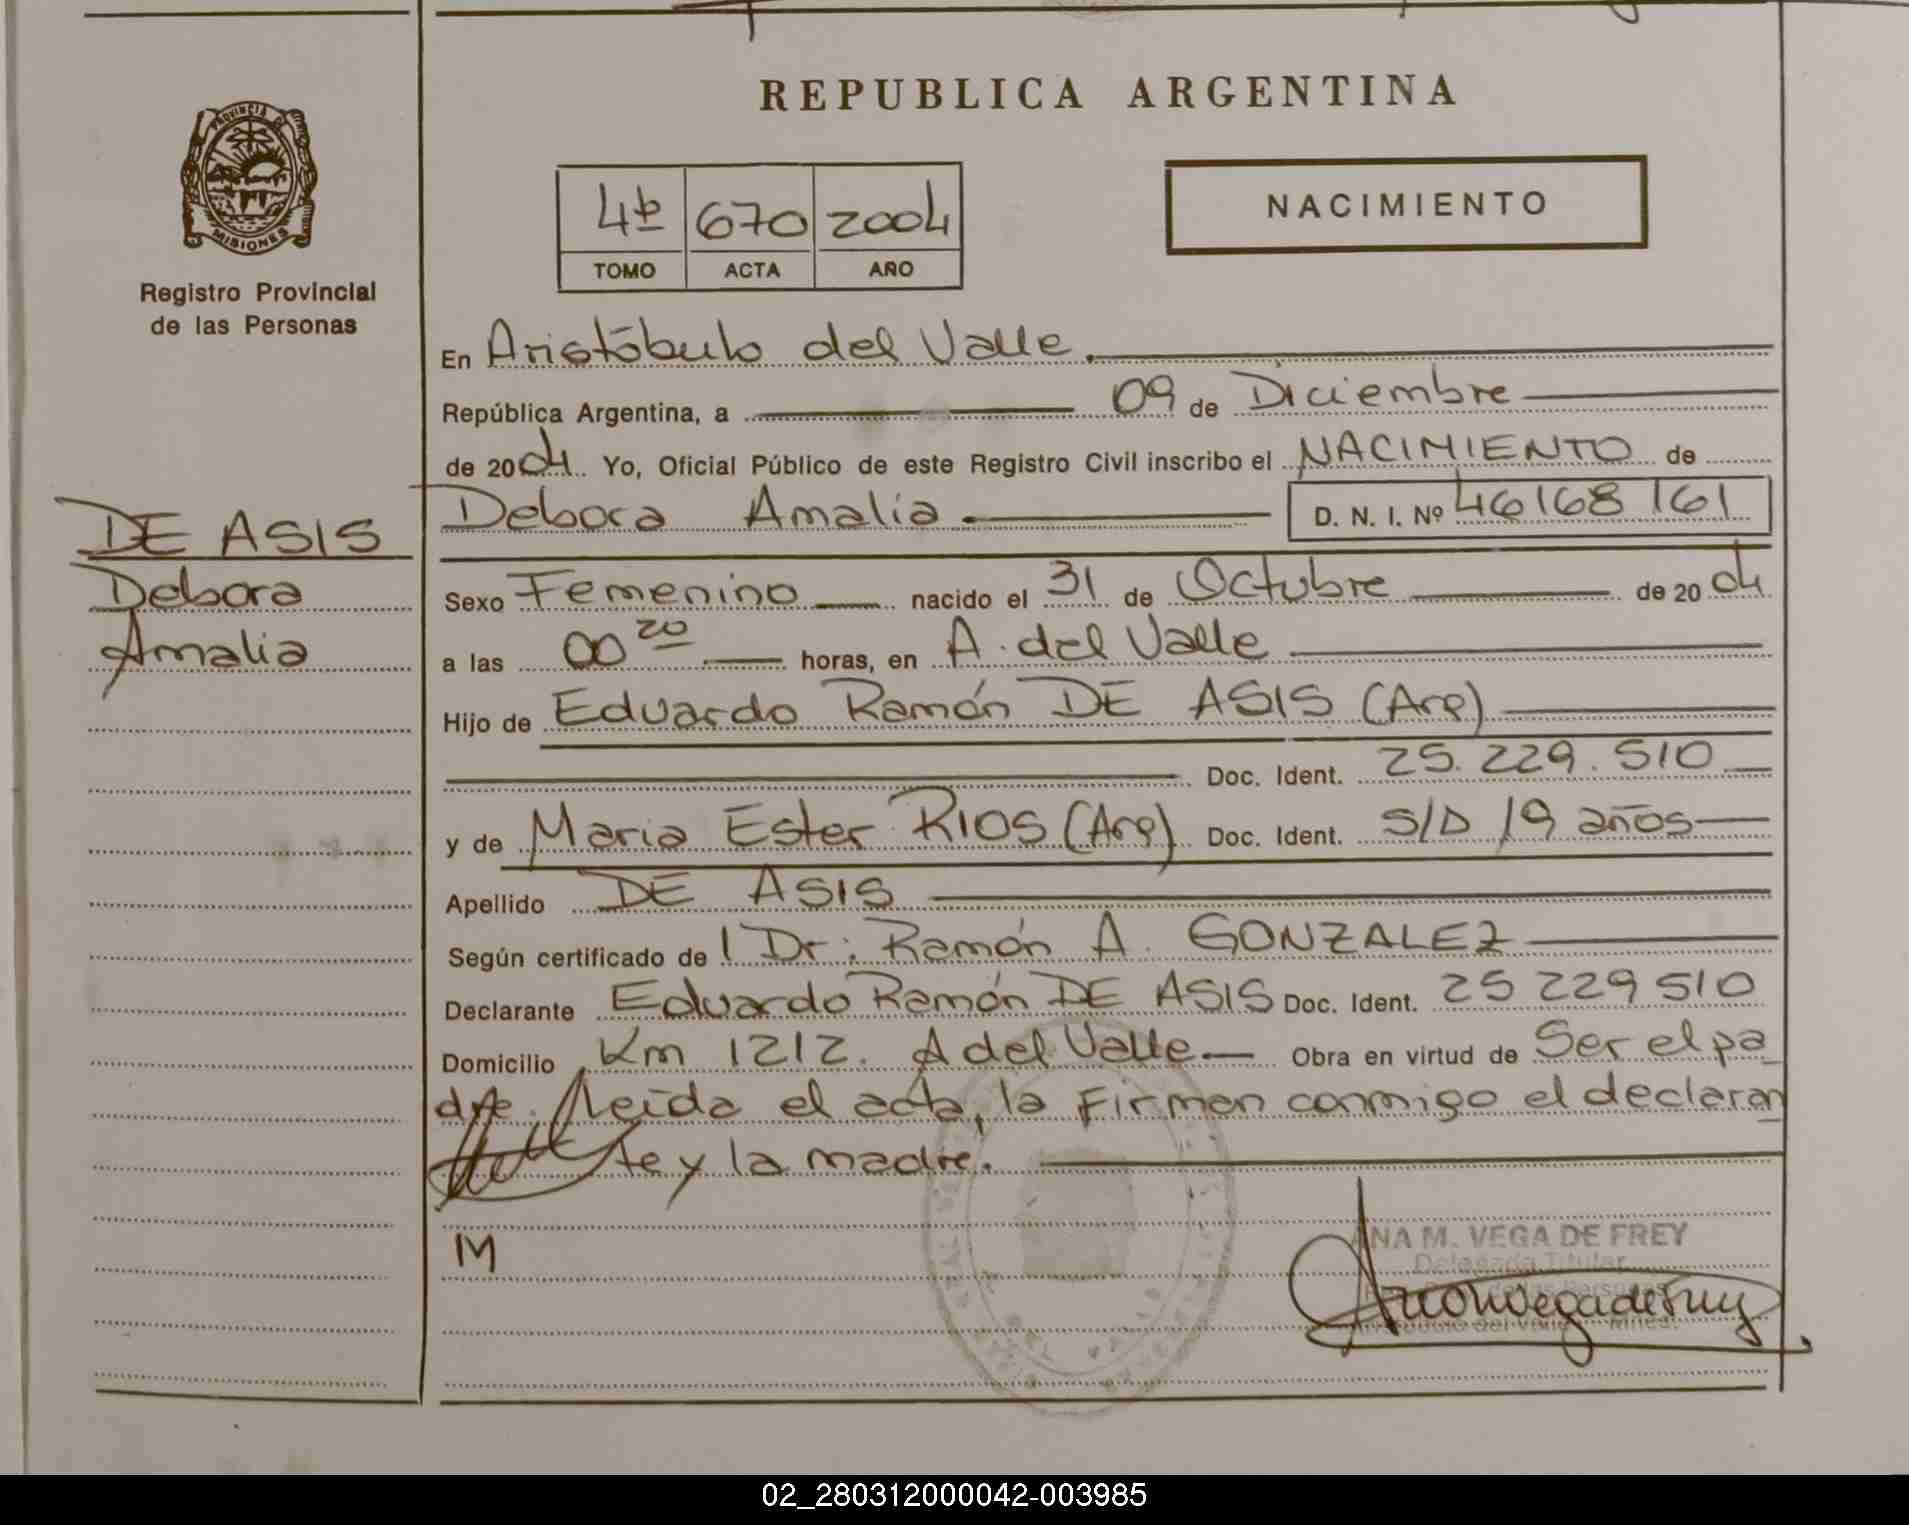 REPUBLICA ARGENTINA
PROVINCIA DE
MISIONES
Registro Provincial
de las Personas
4º 670 2004
TOMO ACTA AÑO
NACIMIENTO
En Aristóbulo del Valle.
República Argentina, a 09 de Diciembre
de 2004 Yo, Oficial Público de este Registro Civil inscribo el NACIMIENTO de
Debora Amalia D. N. I. Nº 46168161
DE ASIS
Debora
Amalia
Sexo Femenino nacido el 31 de Octubre de 2004
a las 00 20 horas, en A. del Valle
Hijo de Eduardo Ramón DE ASIS (Arg)
Doc. Ident. 25.229.510
y de Maria Ester RIOS (Arg) Doc. Ident. S/D 19 años
Apellido DE ASIS
Según certificado de l Dr: Ramón A. GONZALEZ
Declarante Eduardo Ramón DE ASIS Doc. Ident. 25 229 510
Domicilio Km 1212. A del Valle Obra en virtud de Ser el pa
dre. Leida el acta, la firman conmigo el declaran
te y la madre.
M
ANA M. VEGA DE FREY
Delegada Titular
de las Personas
Aristóbulo del Valle - Mnes.
02_280312000042-003985